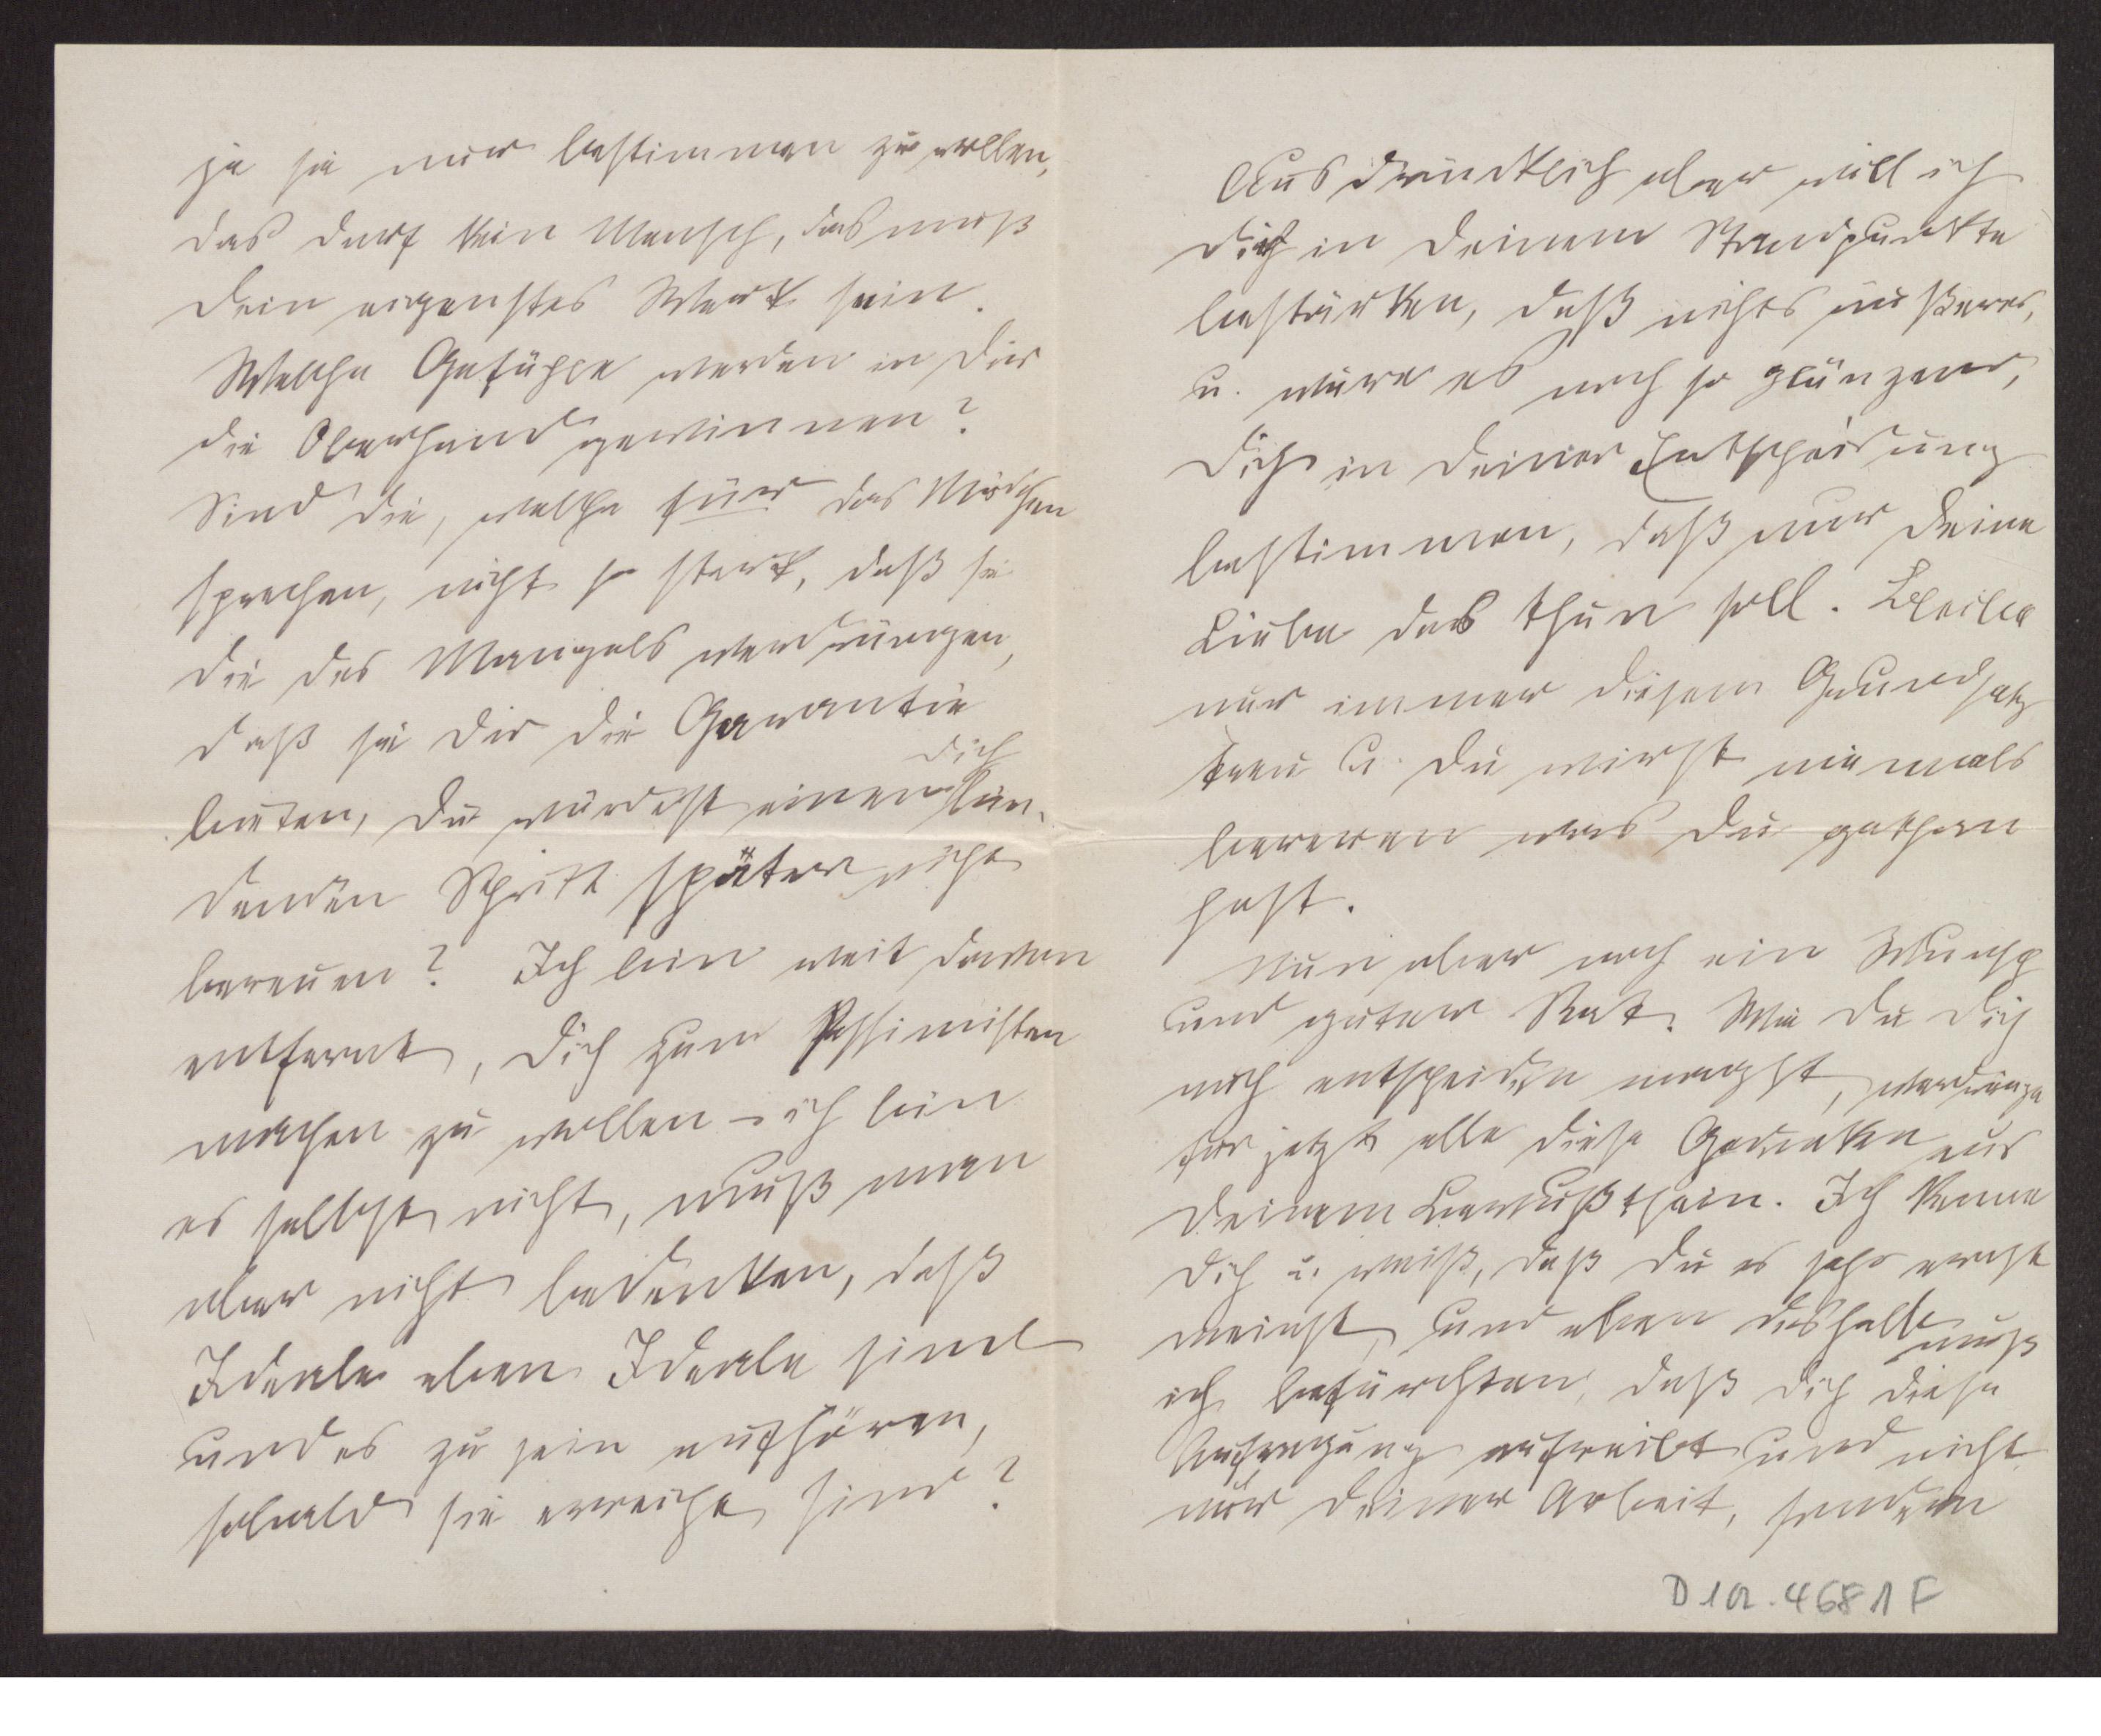 ja sie nur bestimmen zu wollen,
das darf kein Mensch, das muß
Dein eigenstes Werk sein.
Welche Gefühle werden in Dir
die Oberhand gewinnen?
Sind die, welche für das Mädchen
sprechen, nicht so stark, daß sie
die des Mangels verdrängen,
daß sie Dir die Garantie
dich
bieten, Du würdest einen bin-
denden Schritt später nicht
bereuen? Ich bin weit davon
entfernt, Dich zum Pessimisten
machen zu wollen – ich bin
es selbst nicht, muß man
aber nicht bedenken, daß
Ideale eben Ideale sind
und es zu sein aufhören,
sobald sie erreicht sind?
Ausdrücklich aber will ich
Dich in Deinem Standpunkte
bestärken, daß nichts äußeres,
u. wäre es noch so glänzend,
Dich in Deiner Entscheidung
bestimmen, daß nur Deine
Liebe das thun soll. Bleibe
nur immer diesem Grundsatz
treu u. Du wirst niemals
bereuen was Du gethan
hast.
Nun aber noch ein Wunsch
und guter Rat. Wie Du Dich
auch entscheiden magst, verdränge
für jetzt alle diese Gedanken aus
Deinem Bewußtsein. Ich kenne
Dich u. weiß, daß Du es sehr ernst
meinst, und eben deshalb muß
ich befürchten, daß Dich diese
Aufregung aufreibt und nicht
nur Deiner Arbeit, sondern
D 19. 4681 F